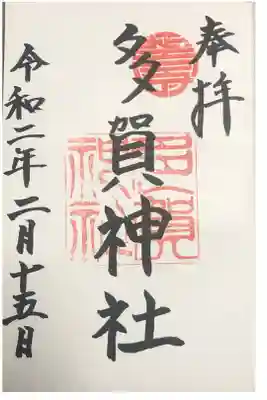 奉拝
多賀神社
令和二年二月十五日
多賀神社